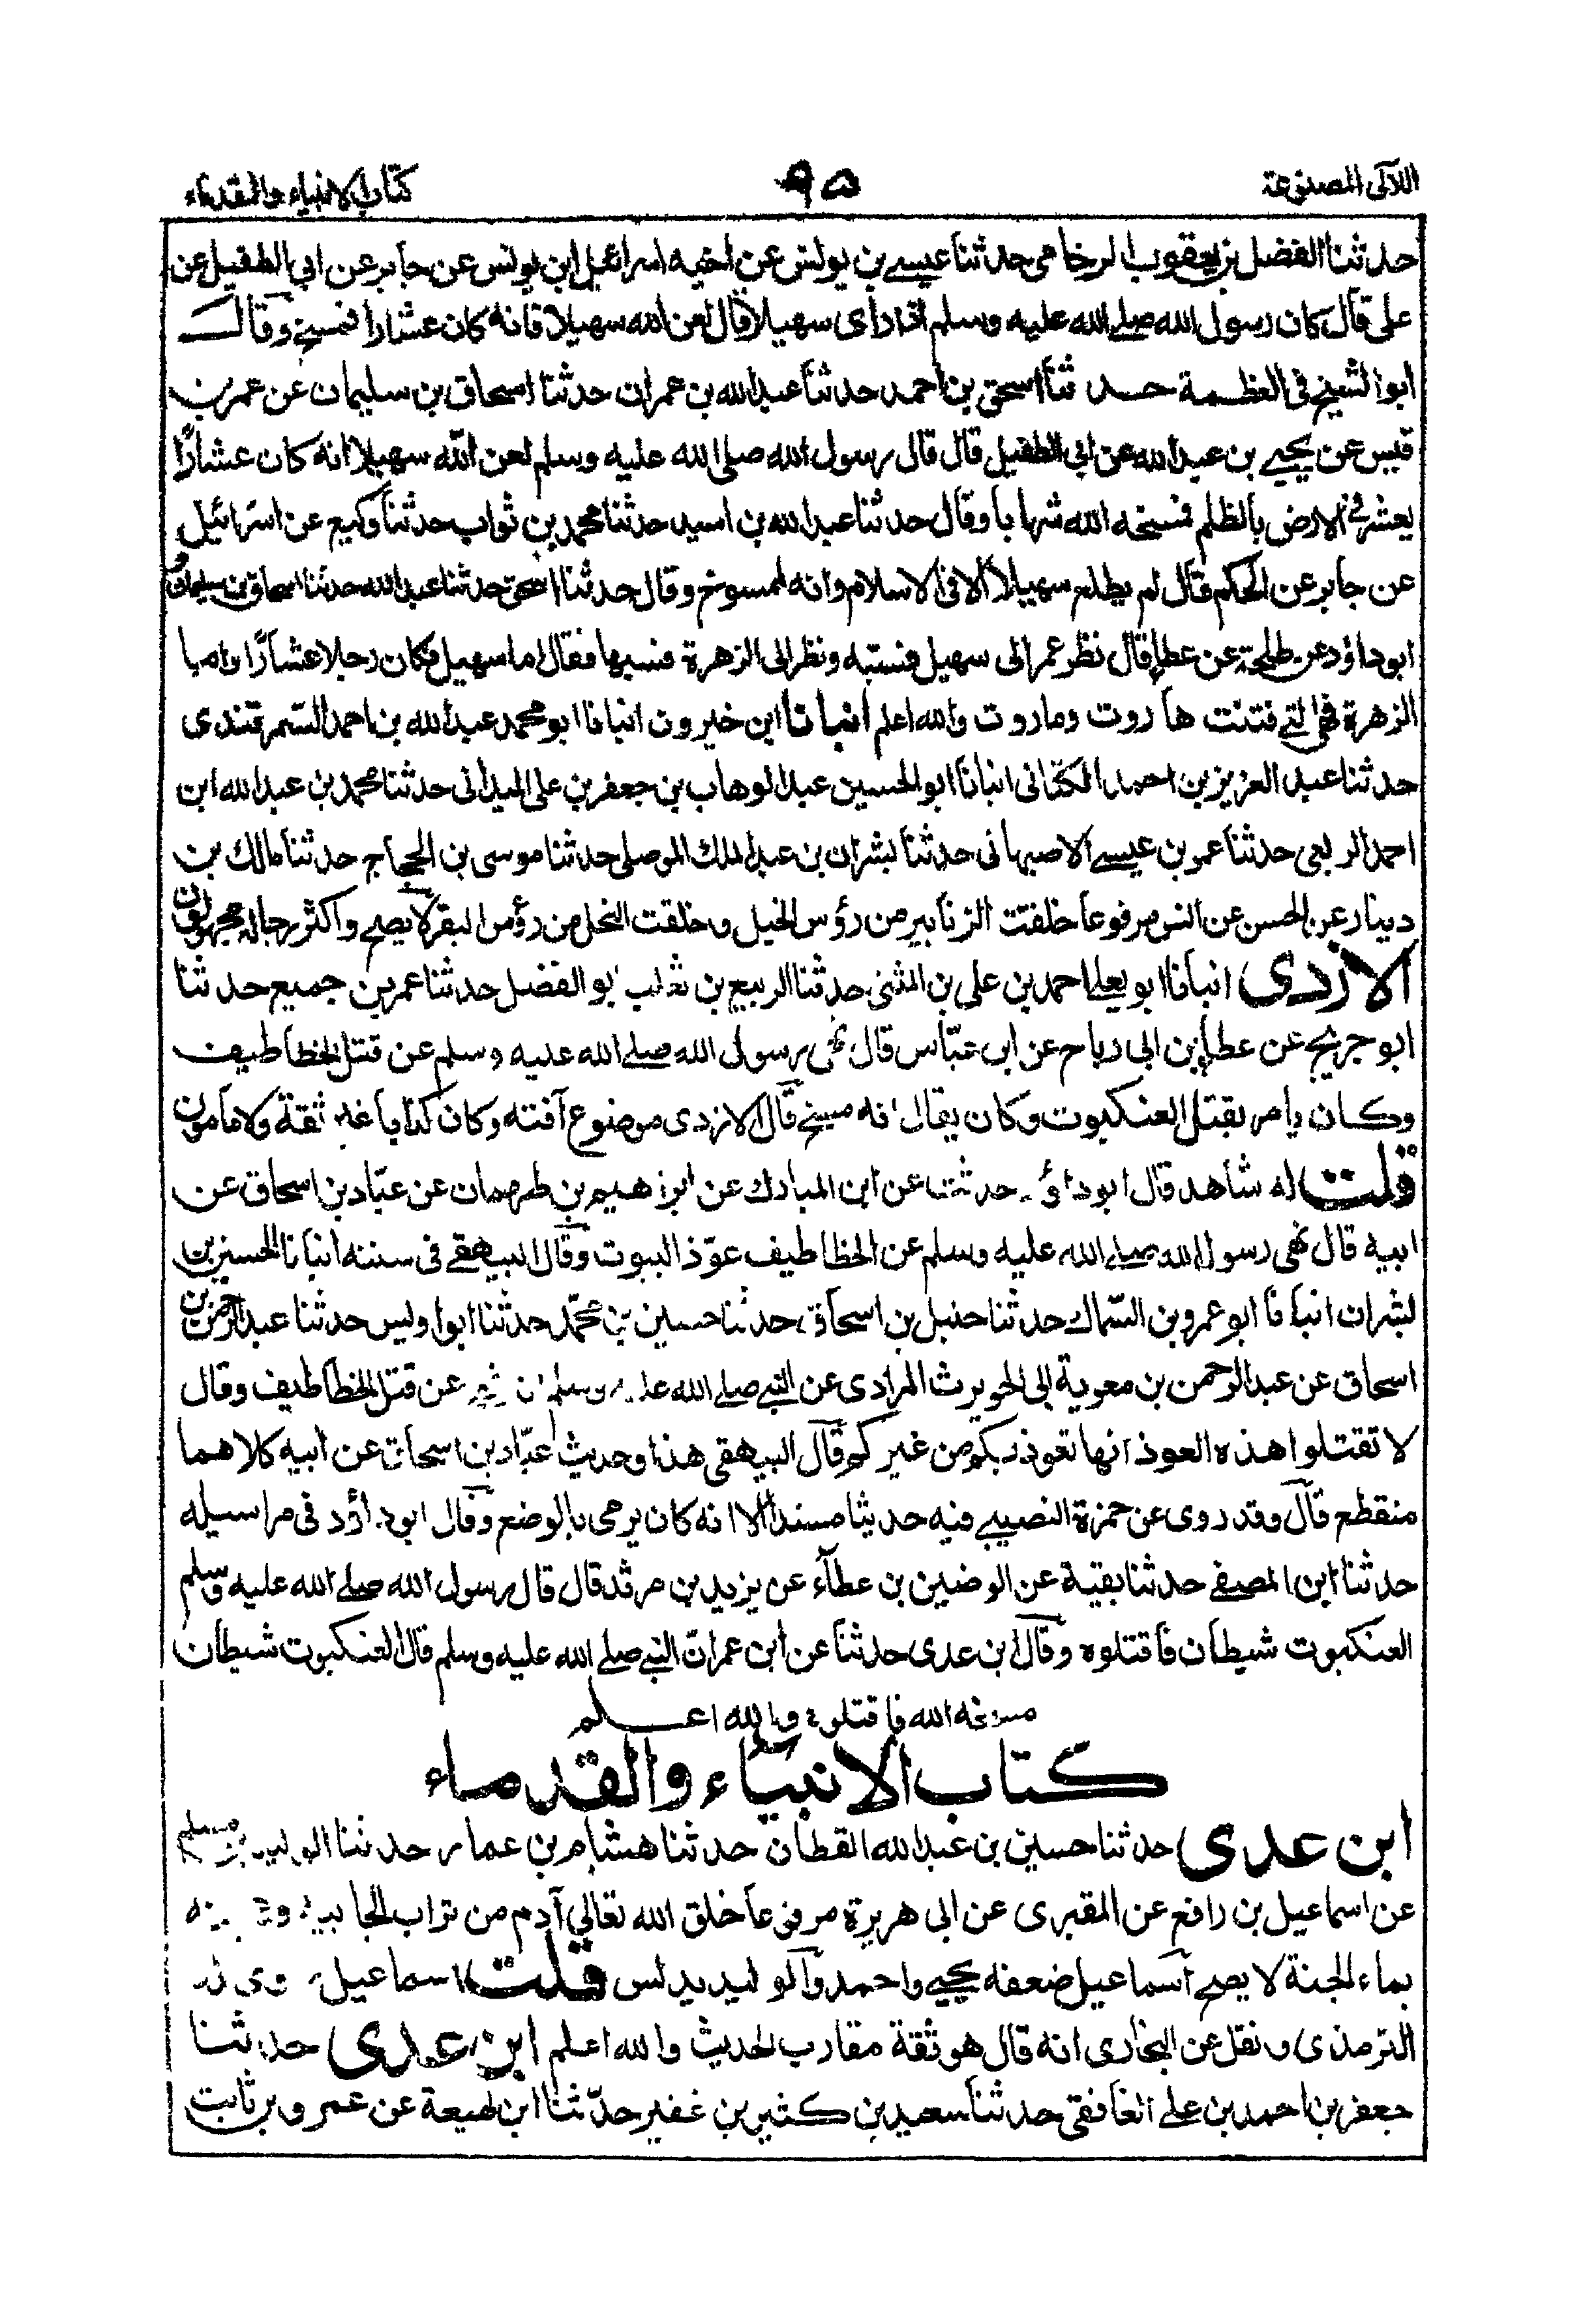 اللآلى المصنوعة
٩٥
كتاب الانبياء والقدماء
حدثنا الفضل بن يعقوب الرخامى حدثنا عيسے بن يونس عن اخيه اسرائيل ابن يونس عن جابر عن ابي الطفيل عن
على قال كان رسول الله صلے الله عليه وسلم اذا رأى سهيلا قال لعن الله سهيلا فانه كان عشارا فمسخ وقال
ابو الشيخ فى العظمة حد ثنا اسحق بن احمد حدثنا عبد الله بن عمران حدثنا اسحاق بن سليمان عن عمر بن
قيس عن يحيے بن عبد الله عن ابي الطفيل قال قال رسول الله صلى الله عليه وسلم لعن الله سهيلا انه كان عشارًا
يعشر فى الارض بالظلم فمسخه الله شهابا وقال حدثنا عبد الله بن اسيد حدثنا محمد بن ثواب حدثنا وكيع عن اسرائيل
عن جابر عن الحكم قال لم يطلع سهيلا الا فى الاسلام وانه لممسوخ وقال حدثنا اسحق حدثنا عبد الله حدثنا اسحاق بن سليمان
ابو داؤد عن طلحة عن عطا قال نظر عمر الى سهيل فسبّه ونظر الى الزهرة فسبها فقال اما سهيل فكان رجلا عشارًا واما
الزهرة فهى التے فتنت هاروت وماروت والله اعلم انبانا ابن خيرون انبانا ابو محمد عبد الله بن احمد السّمرقندى
حدثنا عبد العزيز بن احمد الكتانى انبانا ابو الحسين عبد الوهاب بن جعفر بن على الميدانى حدثنا محمد بن عبد الله ابن
احمد الربعى حدثنا عمر بن عيسے الاصبهانى حدثنا بشران بن عبد الملك الموصلى حدثنا موسى بن الحجاج حدثنا مالك بن
دينار عن الحسن عن انس مرفوعا خلقت الزنابير من رؤس الخيل وخلقت النحل من رؤس البقر لا يصح واكثر رجاله مجهولون
الازدى انبانا ابو يعلے احمد بن على بن المثنى حدثنا الربيع بن ثعلب ابو الفضل حدثنا عمر بن جميع حدثنا
ابو جريج عن عطا بن ابى رباح عن ابى عبّاس قال نهى رسول الله صلے الله عليه وسلم عن قتل الخطاطيف
وكان يامر بقتل العنكبوت وكان يقال انه مسخ قال الازدى موضوع آفته وكان كذابا غير ثقة ولا مامون
قلت له شاهد قال ابو داؤد حدثنا عن ابن المبارك عن ابراهيم بن طهمان عن عبّاد بن اسحاق عن
ابيه قال نهى رسول الله صلے الله عليه وسلم عن الخطاطيف عوّذ البيوت وقال البيهقے فى سننه انبانا الحسين بن
بشران انبانا ابو عمرو بن السّماك حدثنا حنبل بن اسحاق حدثنا حسين بن محمّد حدثنا ابو اويس حدثنا عبد الرحمن بن
اسحاق عن عبد الرحمن بن معوية ابى الحويرث المرادى عن النبے صلے الله عليه وسلم عن قتل الخطاطيف وقال
لا تقتلوا هذه العوذ انها تعوذ بكم من غيركم قال البيهقى هذا وحديث عبّاد بن اسحاق عن ابيه كلاهما
منقطع قال وقد روى عن حمزة النصيبے فيه حديثا مسندا الا انه كان يرمى بالوضع وقال ابو داؤد فى مراسيله
حدثنا ابن المصفے حدثنا بقية عن الوضين بن عطآء عن يزيد بن مرثد قال قال رسول الله صلے الله عليه وسلم
العنكبوت شيطان فاقتلوه وقال ابن عدى حدثنا عن ابن عمر انّ النبے صلے الله عليه وسلم قال العنكبوت شيطان
مسخه الله فاقتلوه والله اعلم
كتاب الانبيآء والقدماء
ابن عدى حدثنا حسين بن عبد الله القطان حدثنا هشام بن عمار حدثنا الوليد بن مسلم
عن اسماعيل بن رافع عن المقبرى عن ابى هريرة مرفوعا خلق الله تعالى آدم من تراب الجابية وعجنه
بماء الجنة لا يصح اسماعيل ضعفه يحيے واحمد والوليد يدلس قلت اسماعيل روى له
الترمذى ونقل عن البخارى انه قال هو ثقة مقارب الحديث والله اعلم ابن عدى حدثنا
جعفر بن احمد بن علے الغافقى حدثنا سعيد بن كثير بن غفير حدّثنا ابن لهيعة عن عمرو بن ثابت